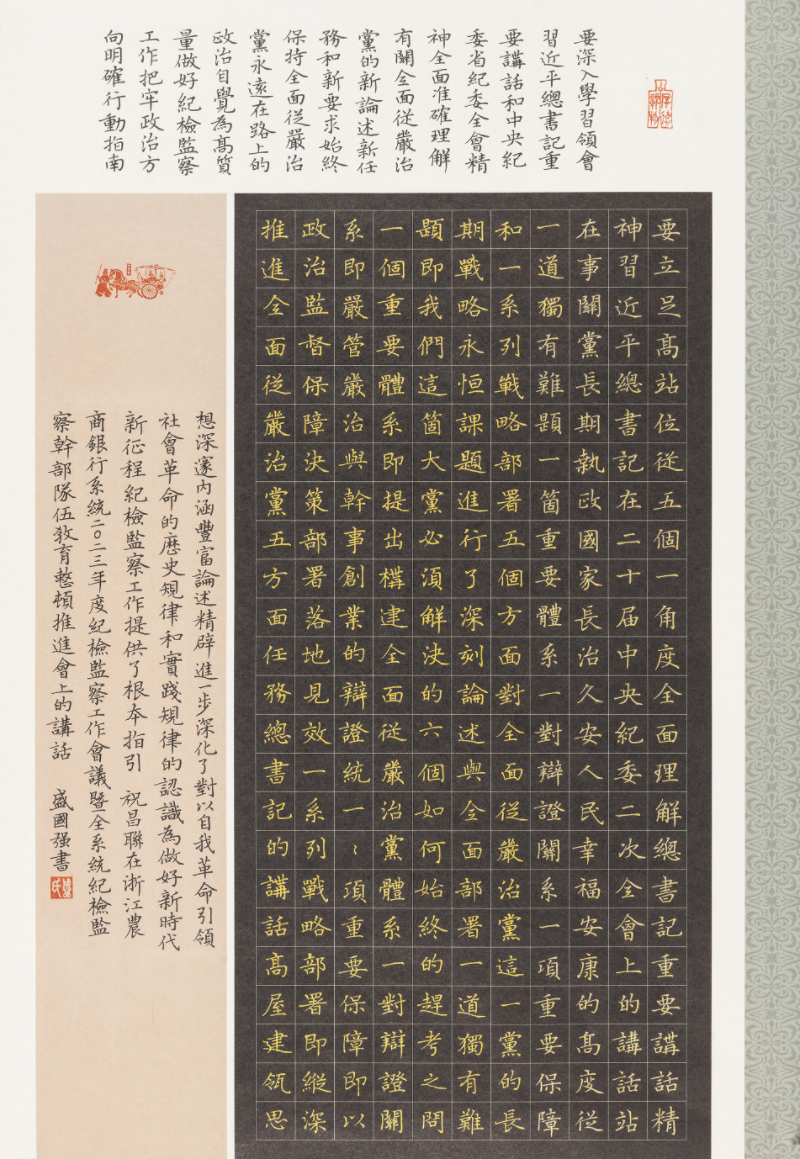 要深入學習領會
習近平總書記重
要講話和中央紀
委省紀委全會精
神全面准確理解
有關全面從嚴治
黨的新論述新任
務和新要求始終
保持全面從嚴治
黨永遠在路上的
政治自覺為高質
量做好紀檢監察
工作把牢政治方
向明確行動指南
要立足高站位從五個一角度全面理解總書記重要講話精
神習近平總書記在二十届中央紀委二次全會上的講話站
在事關黨長期執政國家長治久安人民幸福安康的高度從
一道獨有難題一箇重要體系一對辯證關系一項重要保障
和一系列戰略部署五個方面對全面從嚴治黨這一黨的長
期戰略永恒課題進行了深刻論述與全面部署一道獨有難
題即我們這箇大黨必須解決的六個如何始終的趕考之問
一個重要體系即提出構建全面從嚴治黨體系一對辯證關
系即嚴管嚴治與幹事創業的辯證統一〻項重要保障即以
政治監督保障決策部署落地見效一系列戰略部署即縱深
推進全面從嚴治黨五方面任務總書記的講話高屋建瓴思
想深邃內涵豐富論述精辟進一步深化了對以自我革命引領
社會革命的歷史規律和實踐規律的認識為做好新時代
新征程紀檢監察工作提供了根本指引 祝昌聯在浙江農
商銀行系統二〇二三年度紀檢監察工作會議暨全系統紀檢監
察幹部隊伍教育整頓推進會上的講話 盛國强書